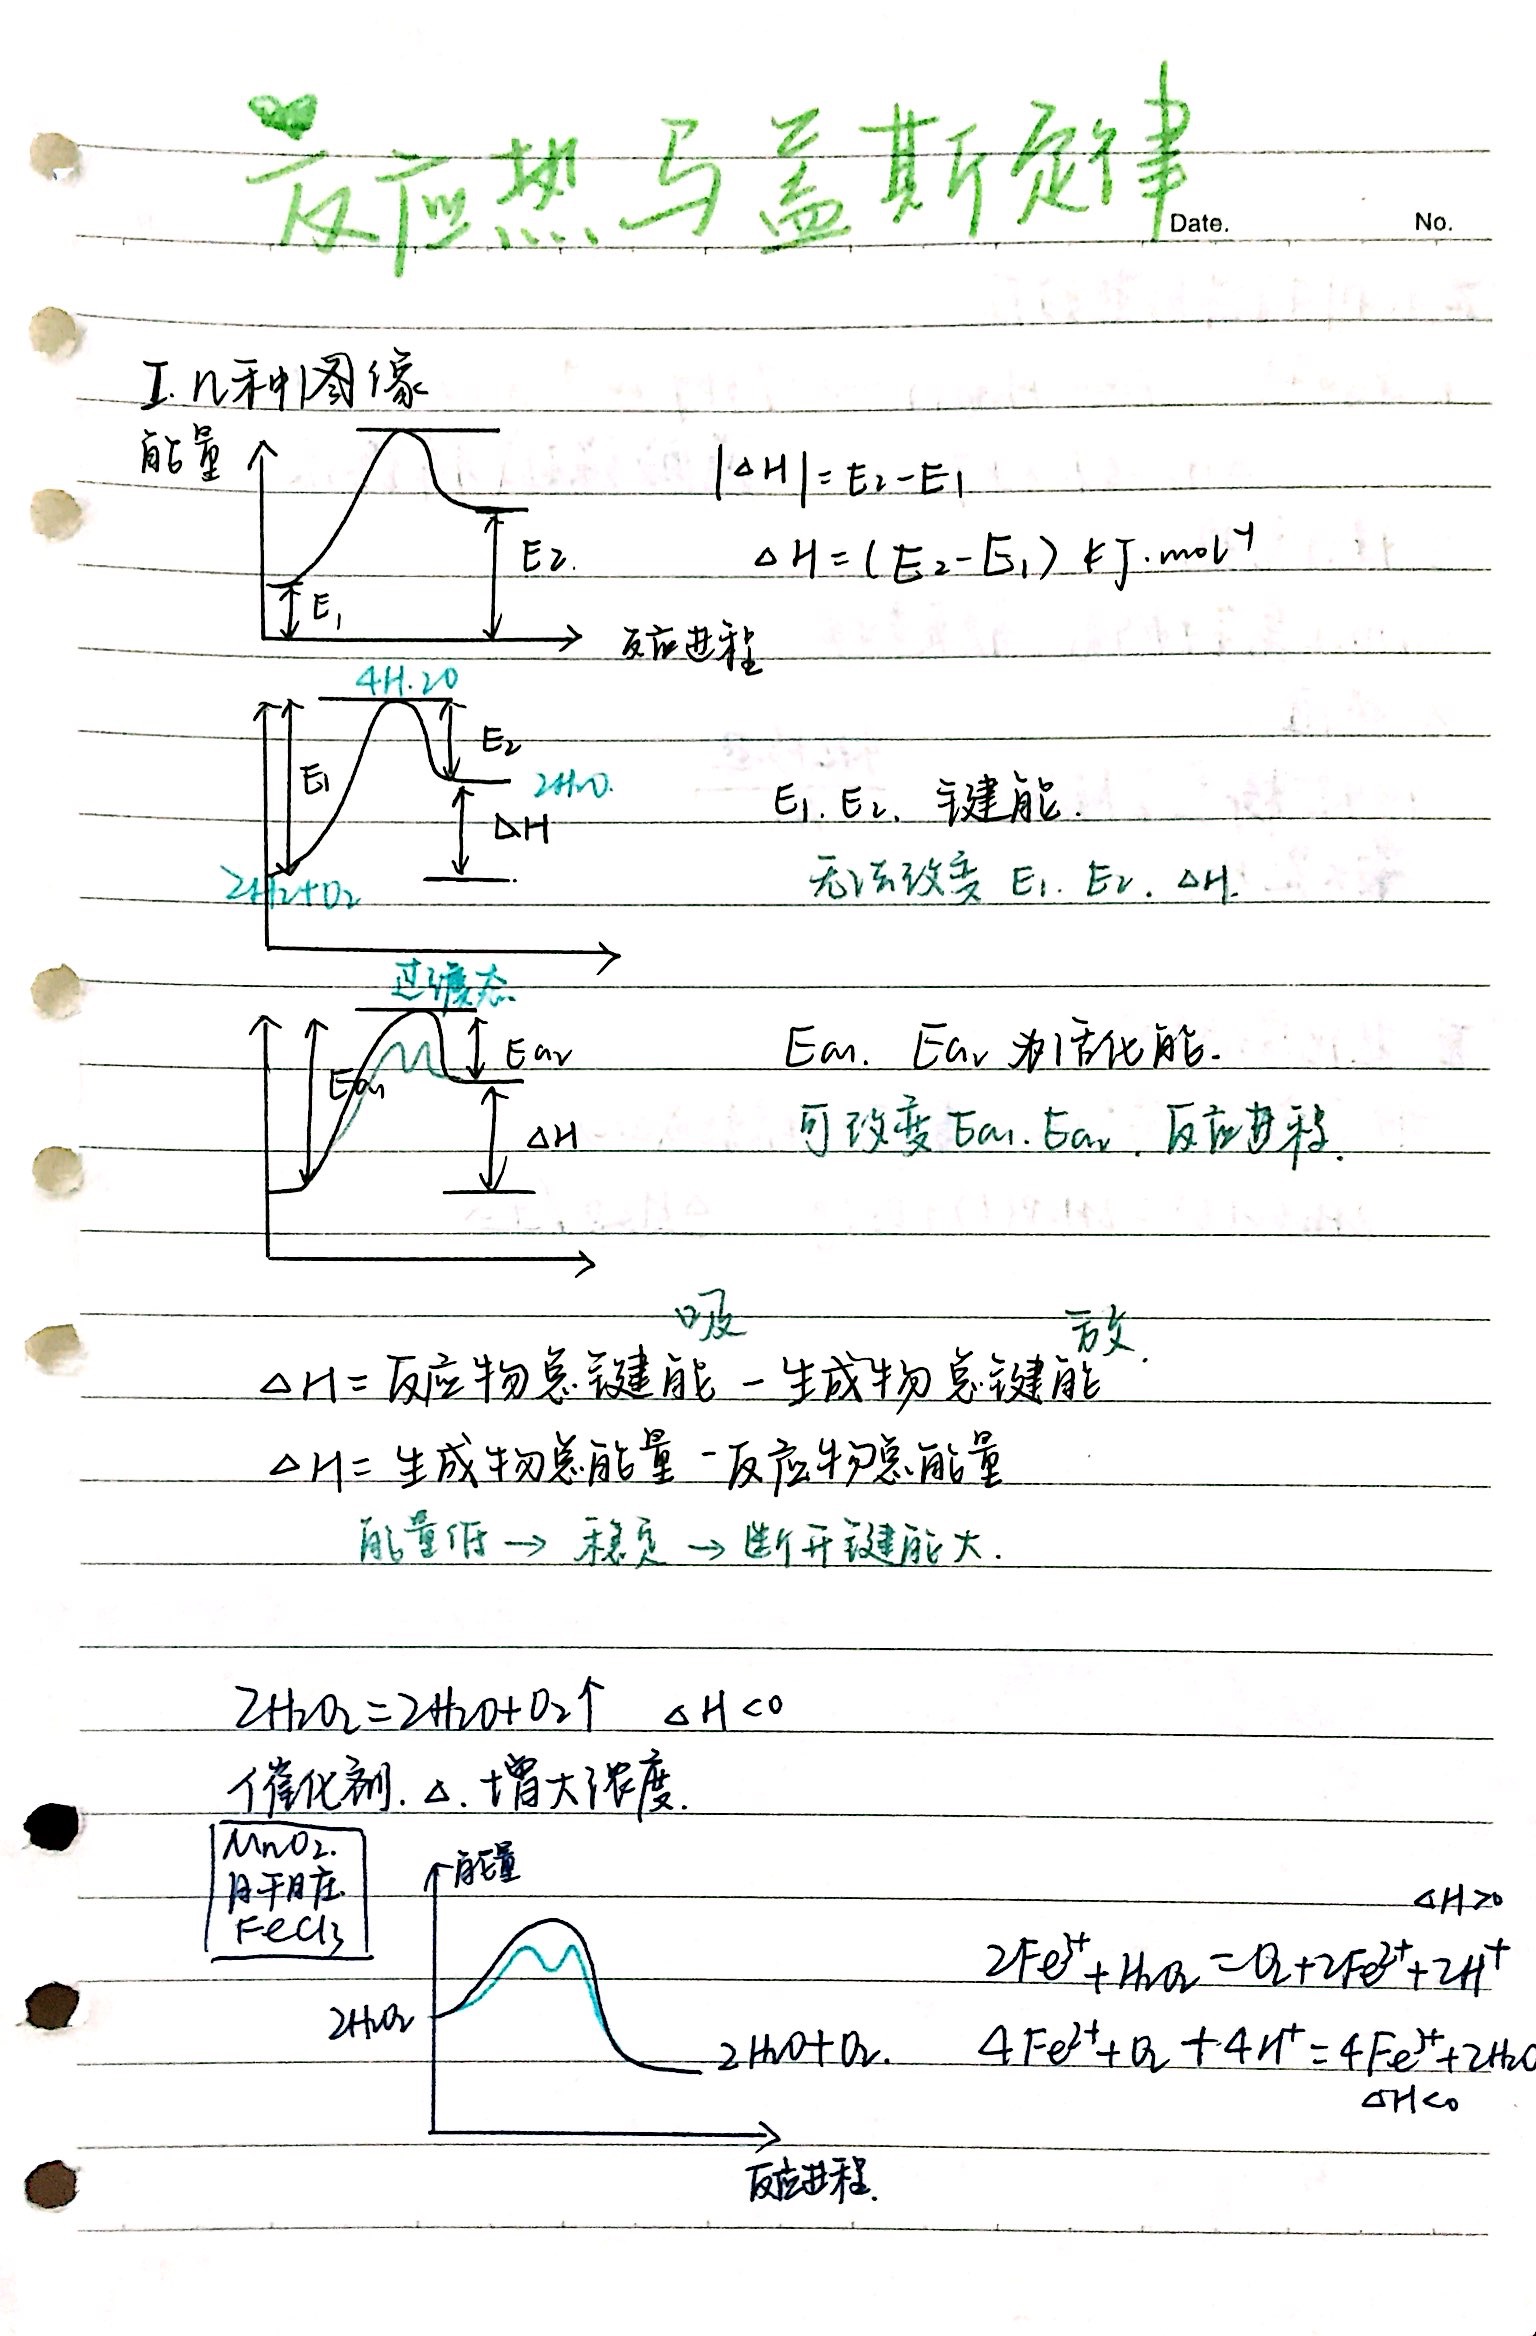 反应热与盖斯定律
Date. No.
I. n种图像
能量
|△H|=E₂-E₁
△H=(E₂-E₁) kJ·mol⁻¹
E₂.
E₁
反应进程
4H.2O
E₁
E₂
2H₂O.
△H
2H₂+O₂
E₁. E₂. 键能.
无法改变 E₁. E₂. △H.
过渡态
Ea₁
Ea₂
△H
Ea₁. Ea₂ 为活化能.
可改变 Ea₁. Ea₂. 反应进程.
吸 放.
△H=反应物总键能-生成物总键能
△H=生成物总能量-反应物总能量
能量低→稳定→断开键能大.
2H₂O₂=2H₂O+O₂↑ △H<0
催化剂. △. 增大浓度.
MnO₂.
肝脏.
FeCl₃
能量
2H₂O₂
2H₂O+O₂.
反应进程.
△H>0
2Fe³⁺+H₂O₂=O₂+2Fe²⁺+2H⁺
4Fe²⁺+O₂+4H⁺=4Fe³⁺+2H₂O
△H<0